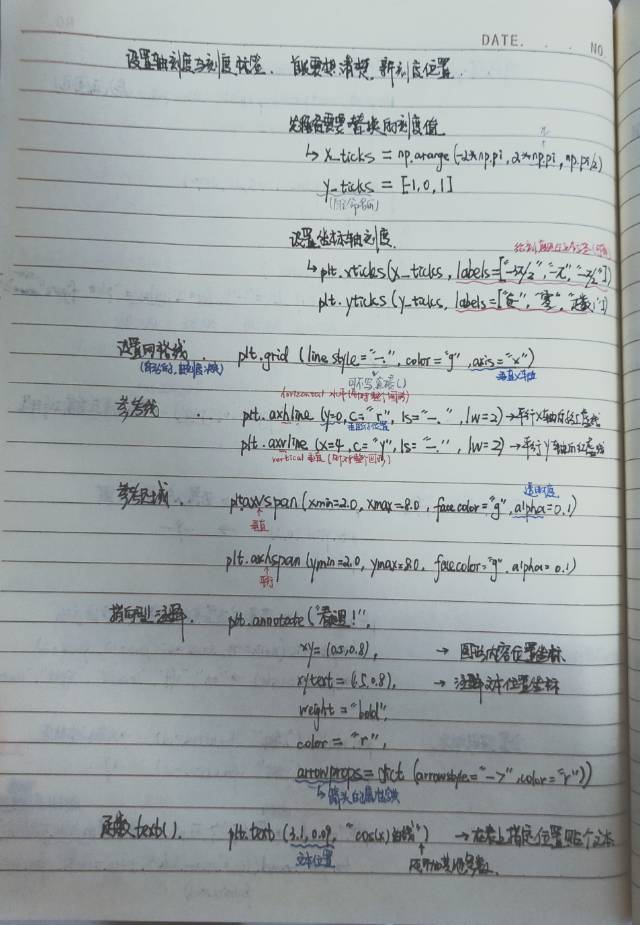 DATE. . . NO.
设置轴刻度与刻度标签. 首先要想清楚, 新刻度位置.
先准备需要替换的刻度值
↳ x_ticks = np.arange(-2*np.pi, 2*np.pi, np.pi/2)
y_ticks = [-1,0,1]
设置坐标轴刻度.
↳ plt.xticks(x_ticks, labels=["-3π/2", "-π", "-π/2"])
plt.yticks(y_ticks, labels=["负", "零", "正数"])
设置网格线. plt.grid (linestyle="-.", color="g", axis="x")
可不写
horizontal 水平
参考线. plt.axhline (y=0, c="r", ls="-.", lw=2) → 平行X轴的红虚线
plt.axvline (x=4, c="r", ls="-.", lw=2) → 平行Y轴的红虚线
vertical 垂直
透明度
参考区域. plt.axvspan(xmin=2.0, xmax=8.0, facecolor="g", alpha=0.1)
垂直
plt.axhspan(ymin=2.0, ymax=8.0, facecolor="g", alpha=0.1)
平行
指向型注释. plt.annotate("看这里!",
xy=(0.5,0.8), → 图形内容位置坐标
xytext=(.5,0.8), → 注释文本位置坐标
weight="bold",
color="r",
arrowprops=dict(arrowstyle="->", color="r"))
↳ 箭头的属性字典
函数text(). plt.text(3.1,0.09, "cos(x)曲线") → 在图上指定位置贴个文本
文本位置
还可加其他参数.